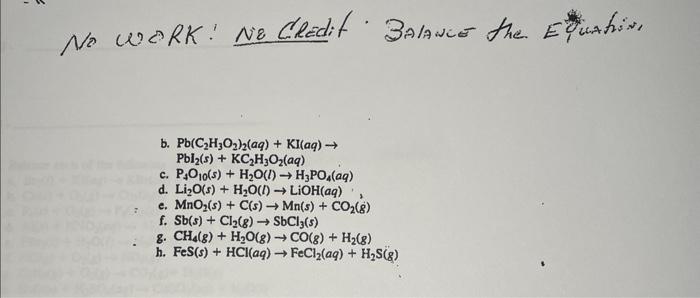 No WORK! No Credit. BALANCE the Equation.
b. Pb(C₂H₃O₂)₂(aq) + KI(aq) →
PbI₂(s) + KC₂H₃O₂(aq)
c. P₄O₁₀(s) + H₂O(l) → H₃PO₄(aq)
d. Li₂O(s) + H₂O(l) → LiOH(aq)
e. MnO₂(s) + C(s) → Mn(s) + CO₂(g)
f. Sb(s) + Cl₂(g) → SbCl₃(s)
g. CH₄(g) + H₂O(g) → CO(g) + H₂(g)
h. FeS(s) + HCl(aq) → FeCl₂(aq) + H₂S(g)